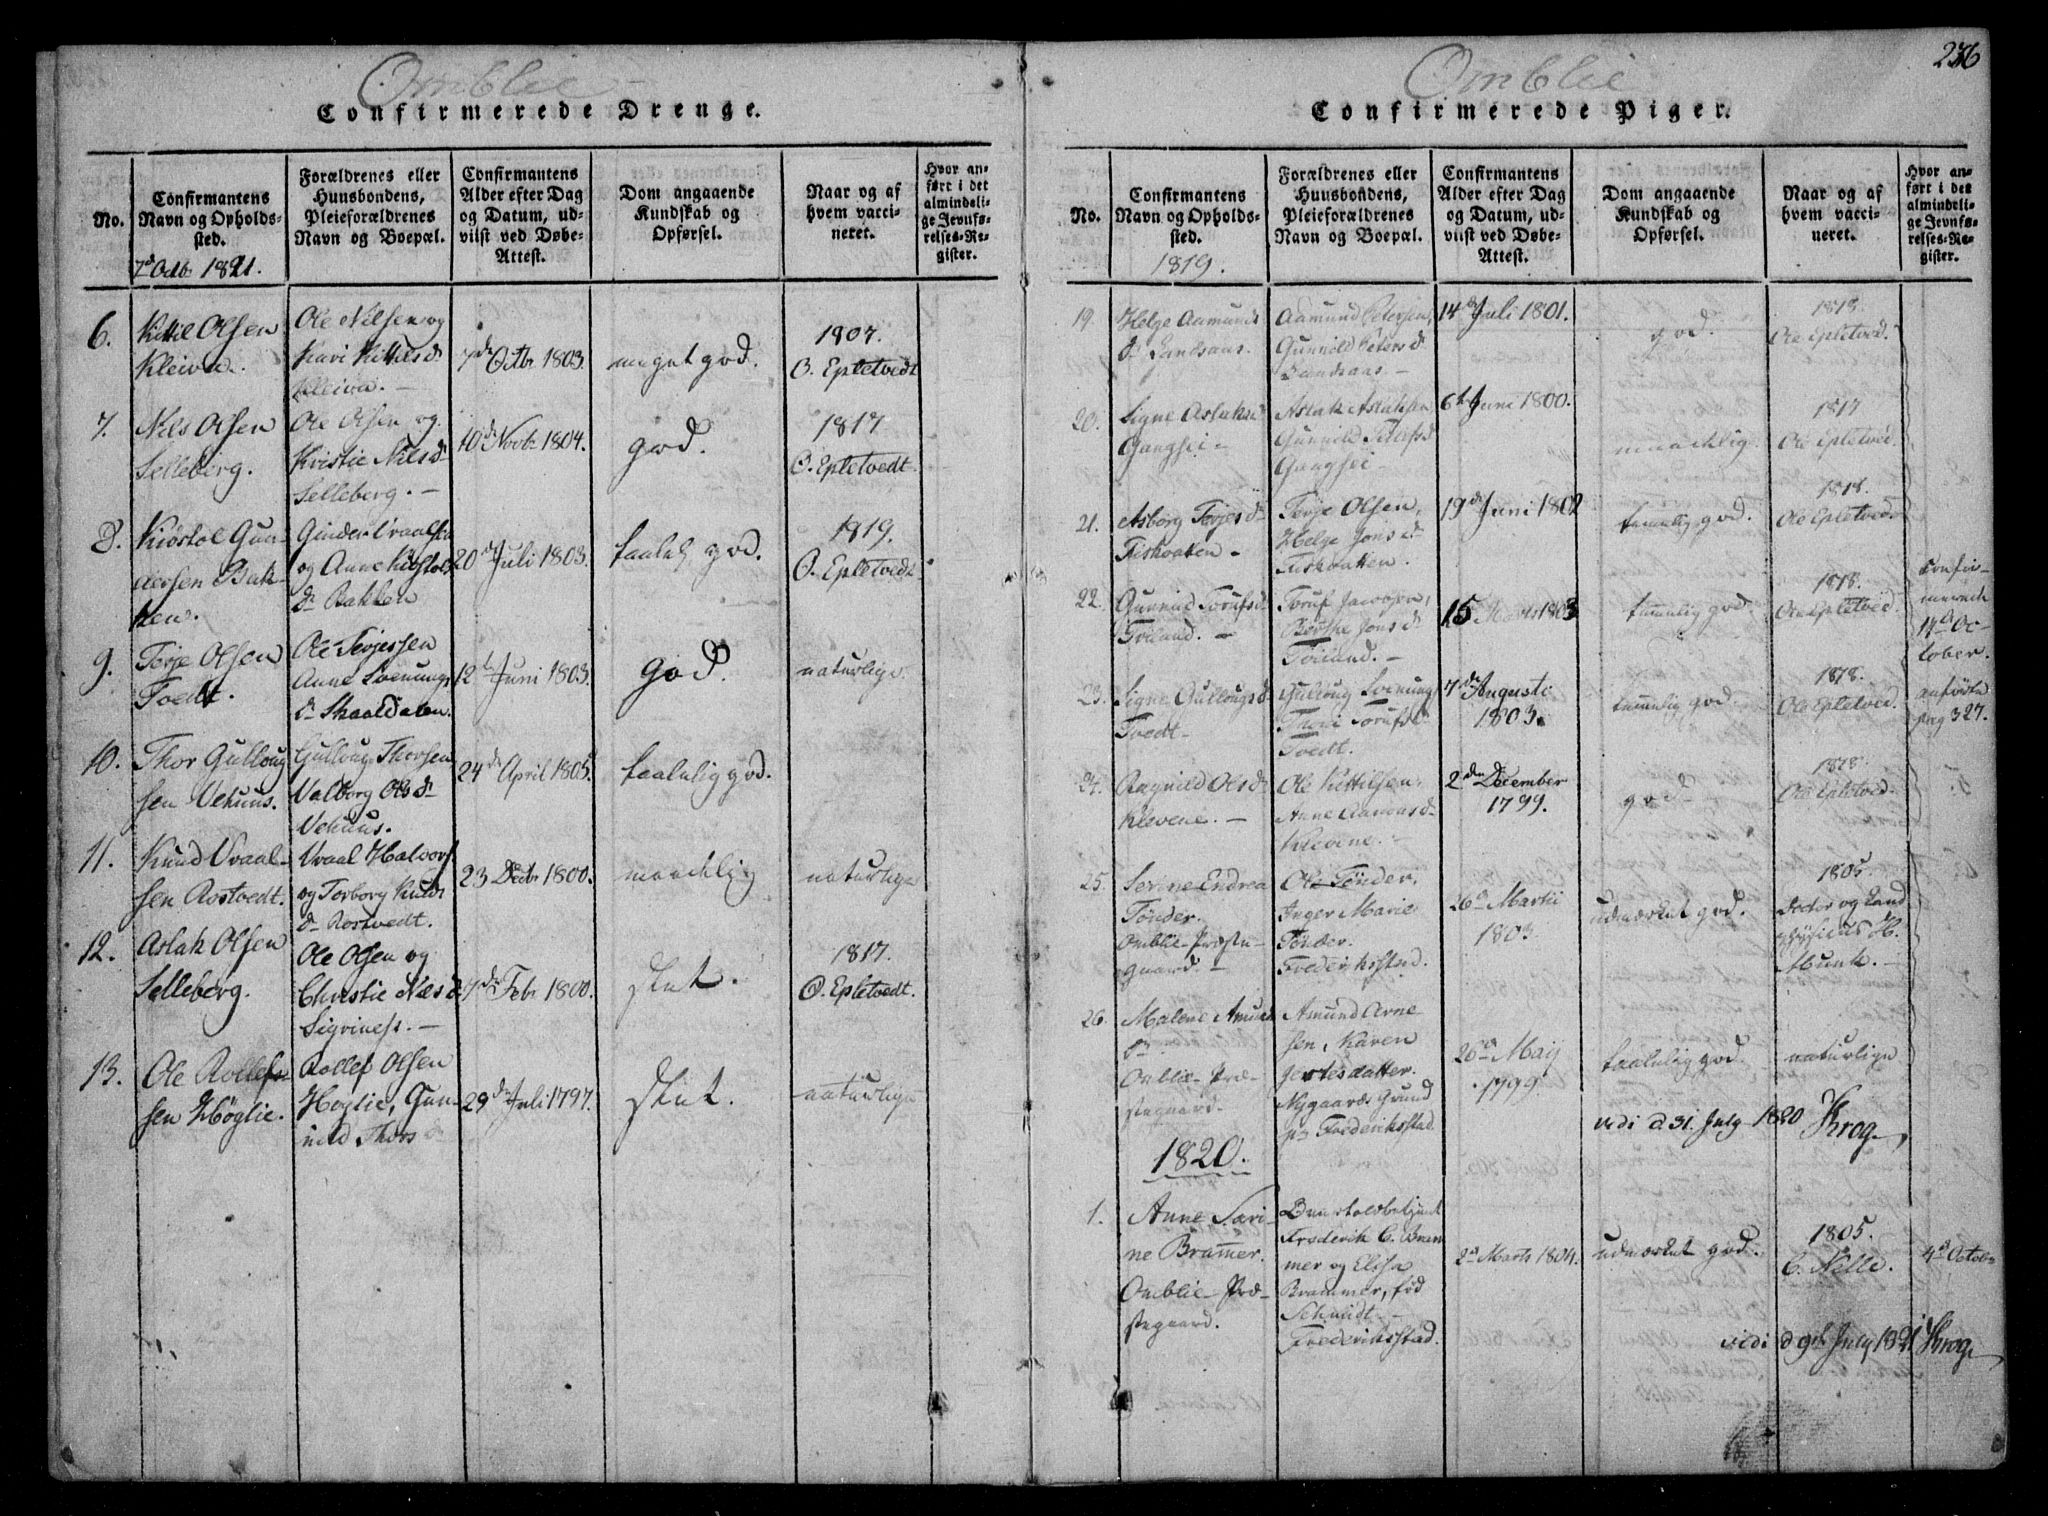 Omblie
Confirmerede Drenge.
No.
Confirmantens Navn og Opholds-sted.
7de Octbr 1821.
Forældrenes eller Huusbondens, Pleieforældrenes Navn og Boepæl.
Confirmantens Alder efter Dag og Datum, ud-viist ved Døbe-Attest.
Dom angaaende Kundskab og Opførsel.
Naar og af hvem vacci-neret.
Hvor an-ført i det almindeli-ge Jevnfø-relses-Re-gister.
6.
Kittil Olsen
Kleiva.
Ole Nilsen og
Kari Kittilsd
Kleiva. –
7de Octbr 1803.
meget god.
1807.
O. Epletvedt
7.
Nils Olsen
Selleberg.
Ole Olsen og
Kristie Nilsd
Selleberg. –
10de Novbr 1804.
god.
1817
O. Epletvedt.
8.
Kiøstol Gun-
dersen Bak-
ken.
Gunder Uvaalsen
og Anne Kiøstols
dr Bakken
20de Juli 1803.
taalel. god.
1819.
O. Epletvedt
9.
Terje Olsen
Tvedt.
Ole Terjessen
Anne Svenungs
dr Skaaldalen.
12te Juni 1803.
god.
naturlige.
10.
Thor Gulloug
sen Vehuus.
Gulloug Thorsen
Valborg Olsdr
Vehuus.
24de April 1805.
taalelig god.
11.
Knud Uvaal-
sen Rostvedt.
Uvaal Halvors
og Torborg Knuds
dr Rostvedt.
23 Decbr 1800.
maadelig
naturlige
12.
Aslak Olsen
Selleberg.
Ole Olsen og
Christie Nilsd
Sigvines. –
7de Febr 1800.
slet.
1817.
O. Epletvedt.
13.
Ole Rollef-
sen Høglie.
Rollef Olsen
Høglie, Gun-
nild Thors
29de Juli 1797.
slet.
naturlige
Omblie
236
Confirmerede Piger.
No.
Confirmantens Navn og Opholds-sted.
1819.
Forældrenes eller Huusbondens, Pleieforældrenes Navn og Boepæl.
Confirmantens Alder efter Dag og Datum, ud-viist ved Døbe-Attest.
Dom angaaende Kundskab og Opførsel.
Naar og af hvem vacci-neret.
Hvor an-ført i det almindeli-ge Jevnfø-relses-Re-gister.
19.
Helge Aamunds
dr Sandaas.
Aamund Petersen,
Gunnild Petersd
Sandaas –
14de Juli 1801.
god.
1818.
Ole Epletved.
20.
Signe Aslaksd
Gangsei –
Aslak Aslaksen
Gunnild
Gangsei –
6te Juni 1800.
maadelig
1817
Ole Epletved.
21.
Asborg Terjesdr
Fiskvatten –
Terje Olsen,
Helge Jonsd
Fiskvatten.
19de Juni 1802
temmelig god.
1818.
Ole Epletved.
22.
Gunnild Torufsd
Froland. –
Toruf Jacobsen,
Jonsd
Froland. –
15 Marts 1803
temmelig god
1818.
Ole Epletved.
Confir-
merede
14de Oc-
tober.
23.
Signe Gullougsd
Tvedt –
Gulloug Svenungs
Torufsd
Tvedt.
7de Augusti
1803.
temmelig god.
1818.
Ole Epletved.
anførte
pag 327.
24.
Ragnild Olsd
Klevene. –
Ole Kittilsen,
Anne
Klevene. –
2den December
1799.
god –
1818.
Ole Epletved.
25.
Serine Endrea
Tønder.
Omblie-Præste-
gaard. –
Ole Tønder.
Inger Marie
Tønder.
Frederiksstad.
26de Martii
1803.
udmærket god.
1805.
Doctor og Land
physicus H.
Munk. –
26.
Malene Amunds
dr.
Omblie-Præ-
stegaard.
Amund Arne
sen, Karen
Jertesdatter.
Nygaards Grund
pr Frederiksstad.
26de Maij
1799.
taalelig god.
naturlige
vidi d 31. July 1820 Krog
1820.
1.
Anne Sari-
ne Brammer.
Omblie-Præ-
stegaard.
Frederik C. Bram
mer og Elisa
Brammer, fød
Schmidt. –
Frederiksstad.
2de Marts 1804.
udmærket god.
1805.
C. Nille.
4de Octobr
vidi d 9de July 1821 Krog